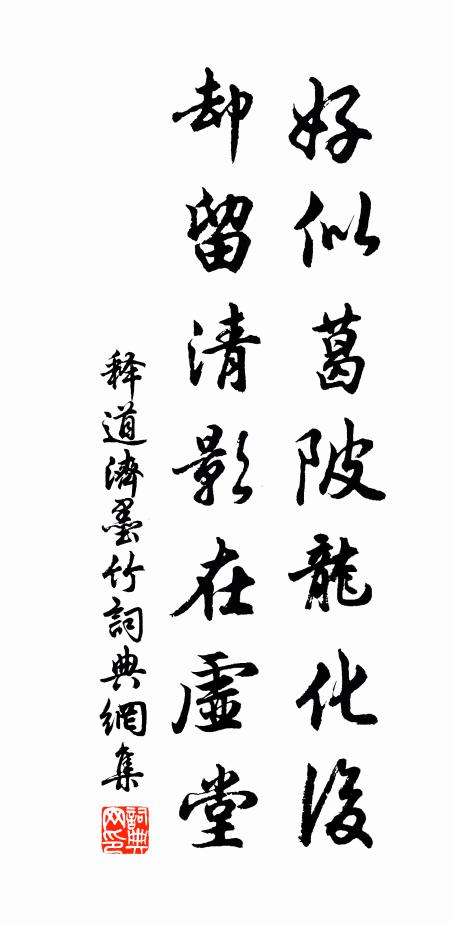 好似葛陂龍化後
却留清影在虛堂
释道濟墨竹詞典網集
詞典网印